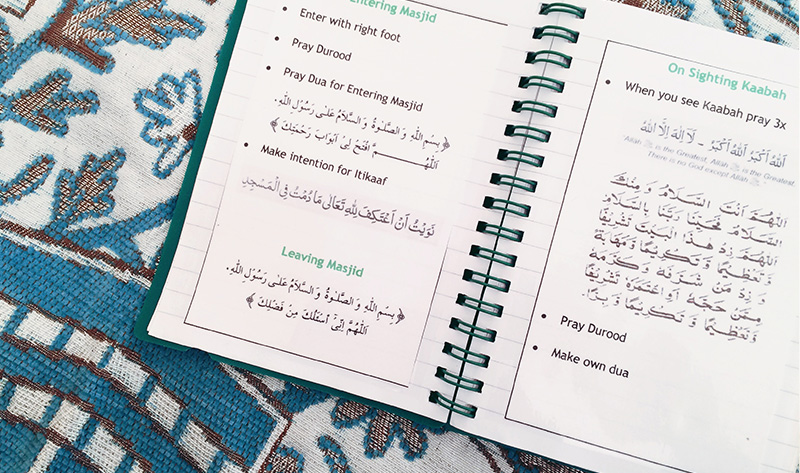 Entering Masjid
Enter with right foot
Pray Durood
Pray Dua for Entering Masjid
﴿ بِسْمِ اللهِ وَ الصَّلٰوةُ وَ السَّلَامُ عَلٰى رَسُوْلِ اللهِ.
اَللّٰهُمَّ افْتَحْ لِىْ اَبْوَابَ رَحْمَتِكَ ﴾
Make intention for Itikaaf
نَوَيْتُ اَنْ اَعْتَكِفَ لِلّٰهِ تَعَالٰى مَا دُمْتُ فِى الْمَسْجِدِ
Leaving Masjid
﴿ بِسْمِ اللهِ وَ الصَّلٰوةُ وَ السَّلَامُ عَلٰى رَسُوْلِ اللهِ.
اَللّٰهُمَّ اِنِّىْ اَسْئَلُكَ مِنْ فَضْلِكَ ﴾
On Sighting Kaabah
When you see Kaabah pray 3x
اَللهُ اَكْبَرُ اَللهُ اَكْبَرُ - لَآ اِلٰهَ اِلَّا اللهُ
'Allah ﷻ is the Greatest, Allah ﷻ is the Greatest.
There is no God except Allah ﷻ'
اَللّٰهُمَّ اَنْتَ السَّلَامُ وَ مِنْكَ
السَّلَامُ فَحَيِّنَا رَبَّنَا بِالسَّلَامِ
اَللّٰهُمَّ زِدْ هٰذَا الْبَيْتَ تَشْرِيْفًا
وَ تَعْظِيْمًا وَ تَكْرِيْمًا وَ مَهَابَةً
وَ زِدْ مَنْ شَرَّفَهٗ وَ كَرَّمَهٗ
مِمَّنْ حَجَّهٗ اَوِ اعْتَمَرَهٗ تَشْرِيْفًا
وَ تَعْظِيْمًا وَ تَكْرِيْمًا وَ بِرًّا.
Pray Durood
Make own dua